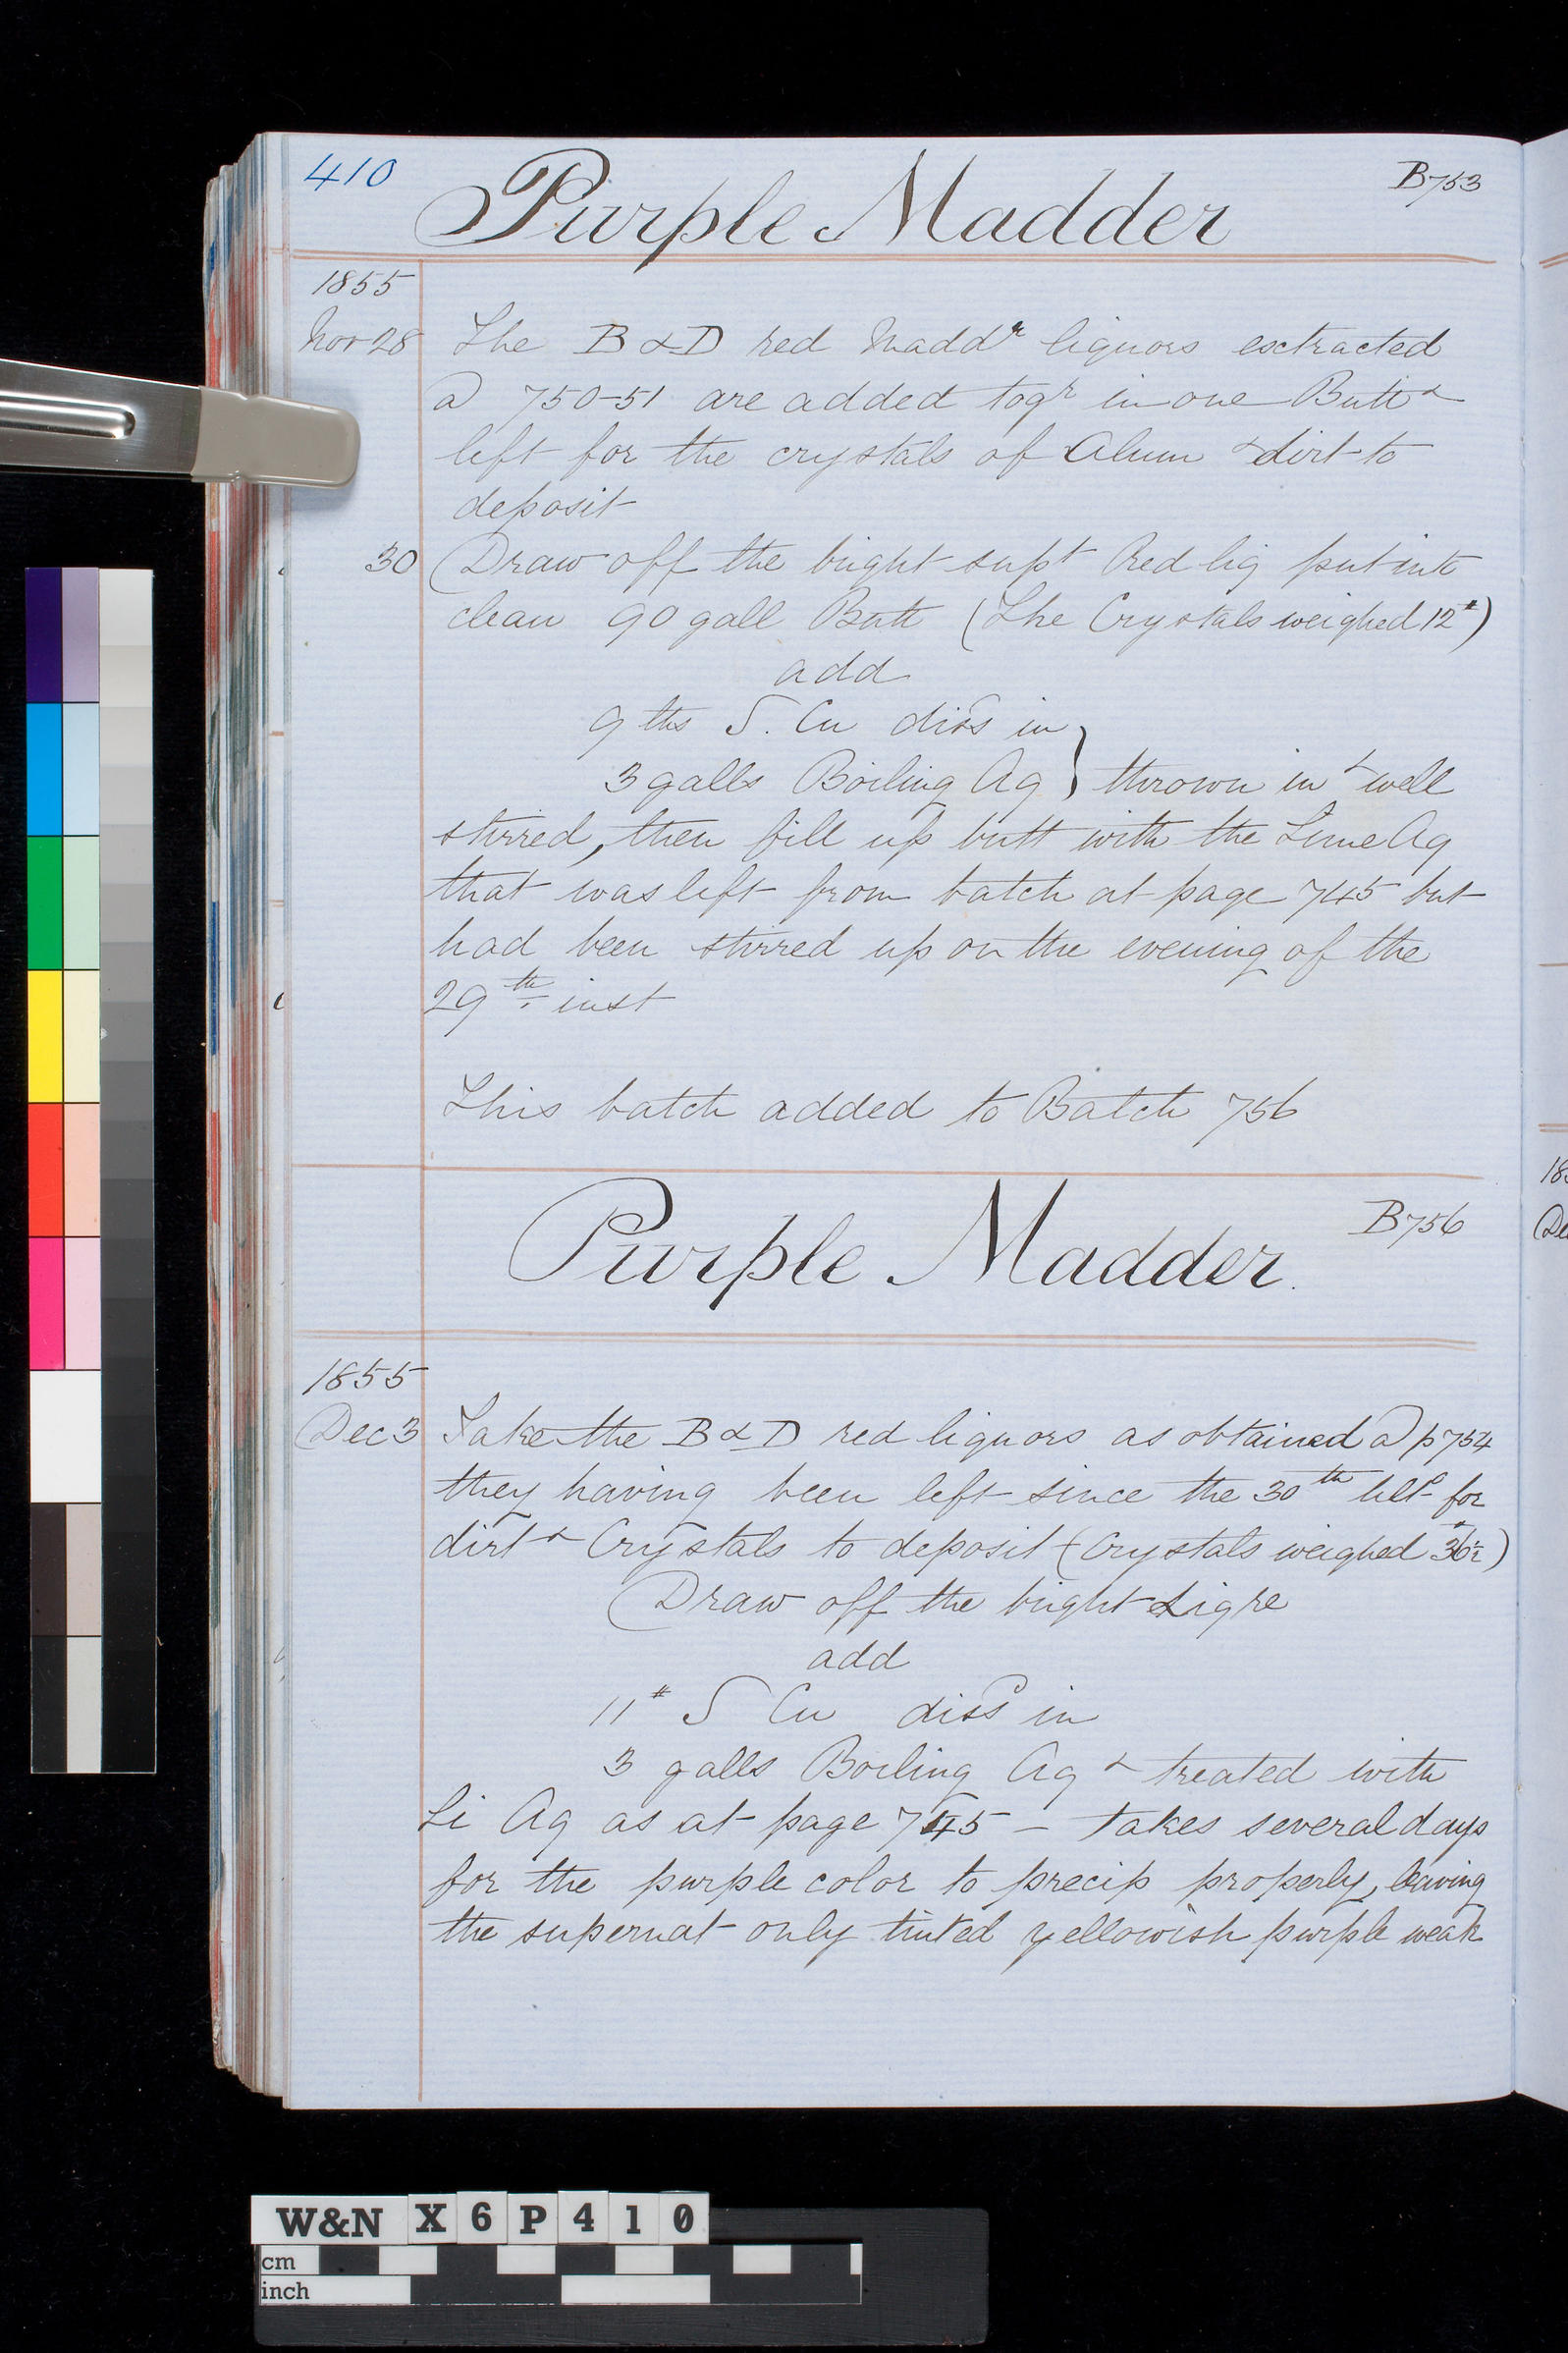 410
Purple Madder
B753
1855
Nov 28 The B & D red Maddr liquors extracted
@ 750-51 are added togr in one Butt &
left for the crystals of Alum & dirt to
deposit
30 Draw off the bright supt Red liq put into
clean 90 gall Butt (The Crystals weighed 12#)
add
9 lbs S. Cu diss in
3 galls Boiling Aq } thrown in & well
stirred, then fill up butt with the Lime Aq
that was left from batch at page 745 but
had been stirred up on the evening of the
29th inst
This batch added to Batch 756
Purple Madder.
B756
1855
Dec 3 Take the B & D red liquors as obtained @ p 754
they having been left since the 30th ult for
dirt & Crystals to deposit (Crystals weighed 36½#)
Draw off the bright Liqre
add
11# S Cu diss in
3 galls Boiling Aq & treated with
Li Aq as at page 745 - takes several days
for the purple color to precip properly, leaving
the supernat only tinted yellowish purple weak
18
De
W&N X6P410
cm
inch